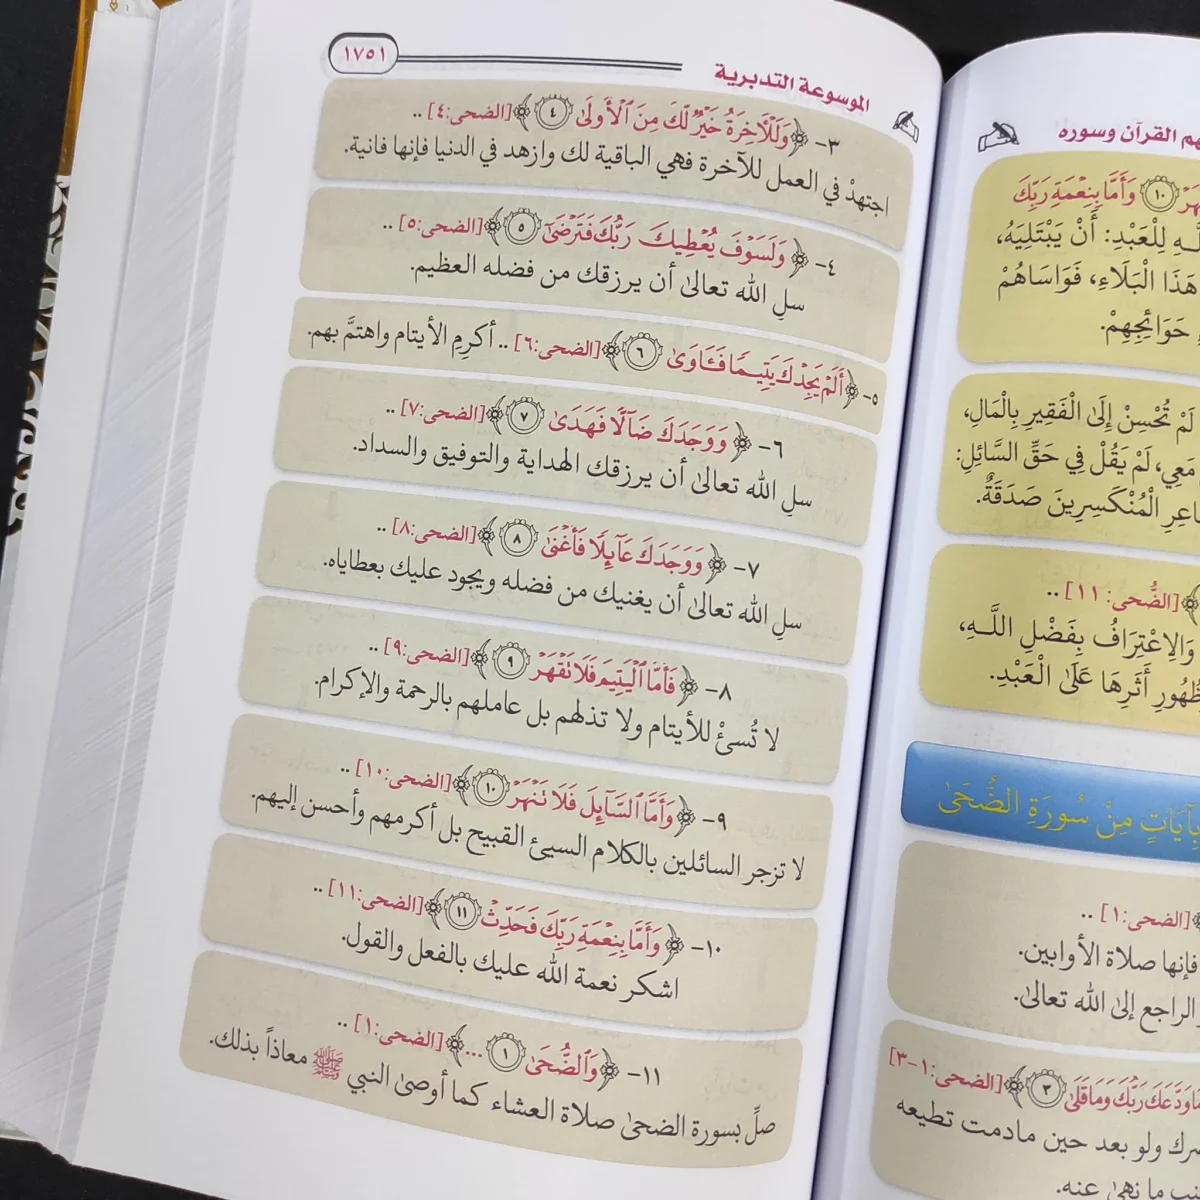 فهم القرآن وسوره
١٠ وَأَمَّا بِنِعْمَةِ رَبِّكَ
لِلْعَبْدِ: أَنْ يَبْتَلِيَهُ،
هَذَا الْبَلَاءِ، فَوَاسَاهُمْ
حَوَائِجِهِمْ.
لَمْ تُحْسِنْ إِلَى الْفَقِيرِ بِالْمَالِ،
مَعِي، لَمْ يَقُلْ فِي حَقِّ السَّائِلِ:
الْمُنْكَسِرِينَ صَدَقَةٌ.
﴾[الضُّحى: ١١] ..
وَالِاعْتِرَافُ بِفَضْلِ اللَّـهِ،
أَثَرِهَا عَلَى الْعَبْدِ.
مِنْ سُورَةِ الضُّحَىٰ
﴾[الضحى:١] ..
فإنها صلاة الأوابين.
الراجع إلى الله تعالىٰ.
وَدَّعَكَ رَبُّكَ وَمَا قَلَىٰ ٣﴾[الضحى:١-٣]
ولو بعد حين مادمت تطيعه
ما نهىٰ عنه.
الموسوعة التدبرية
١٧٥١
٣- ﴿وَلَلْآخِرَةُ خَيْرٌ لَّكَ مِنَ ٱلْأُولَىٰ ٤﴾[الضحى:٤] ..
اجتهدْ في العمل للآخرة فهي الباقية لك وازهد في الدنيا فإنها فانية.
٤- ﴿وَلَسَوْفَ يُعْطِيكَ رَبُّكَ فَتَرْضَىٰ ٥﴾[الضحى:٥] ..
سلِ الله تعالىٰ أن يرزقك من فضله العظيم.
٥- ﴿أَلَمْ يَجِدْكَ يَتِيمًا فَـَٔاوَىٰ ٦﴾[الضحى:٦] .. أكرِمِ الأيتام واهتمَّ بهم.
٦- ﴿وَوَجَدَكَ ضَآلًّا فَهَدَىٰ ٧﴾[الضحى:٧] ..
سلِ الله تعالىٰ أن يرزقك الهداية والتوفيق والسداد.
٧- ﴿وَوَجَدَكَ عَآئِلًا فَأَغْنَىٰ ٨﴾[الضحى:٨] ..
سلِ الله تعالىٰ أن يغنيك من فضله ويجود عليك بعطاياه.
٨- ﴿فَأَمَّا ٱلْيَتِيمَ فَلَا تَقْهَرْ ٩﴾[الضحى:٩] ..
لا تُسئْ للأيتام ولا تذلهم بل عاملهم بالرحمة والإكرام.
٩- ﴿وَأَمَّا ٱلسَّآئِلَ فَلَا تَنْهَرْ ١٠﴾[الضحى:١٠] ..
لا تزجر السائلين بالكلام السيئ القبيح بل أكرمهم وأحسن إليهم.
١٠- ﴿وَأَمَّا بِنِعْمَةِ رَبِّكَ فَحَدِّثْ ١١﴾[الضحى:١١] ..
اشكر نعمة الله عليك بالفعل والقول.
١١- ﴿وَٱلضُّحَىٰ ١ ...﴾[الضحى:١] ..
صلِّ بسورة الضحىٰ صلاة العشاء كما أوصىٰ النبي ﷺ معاذاً بذلك.